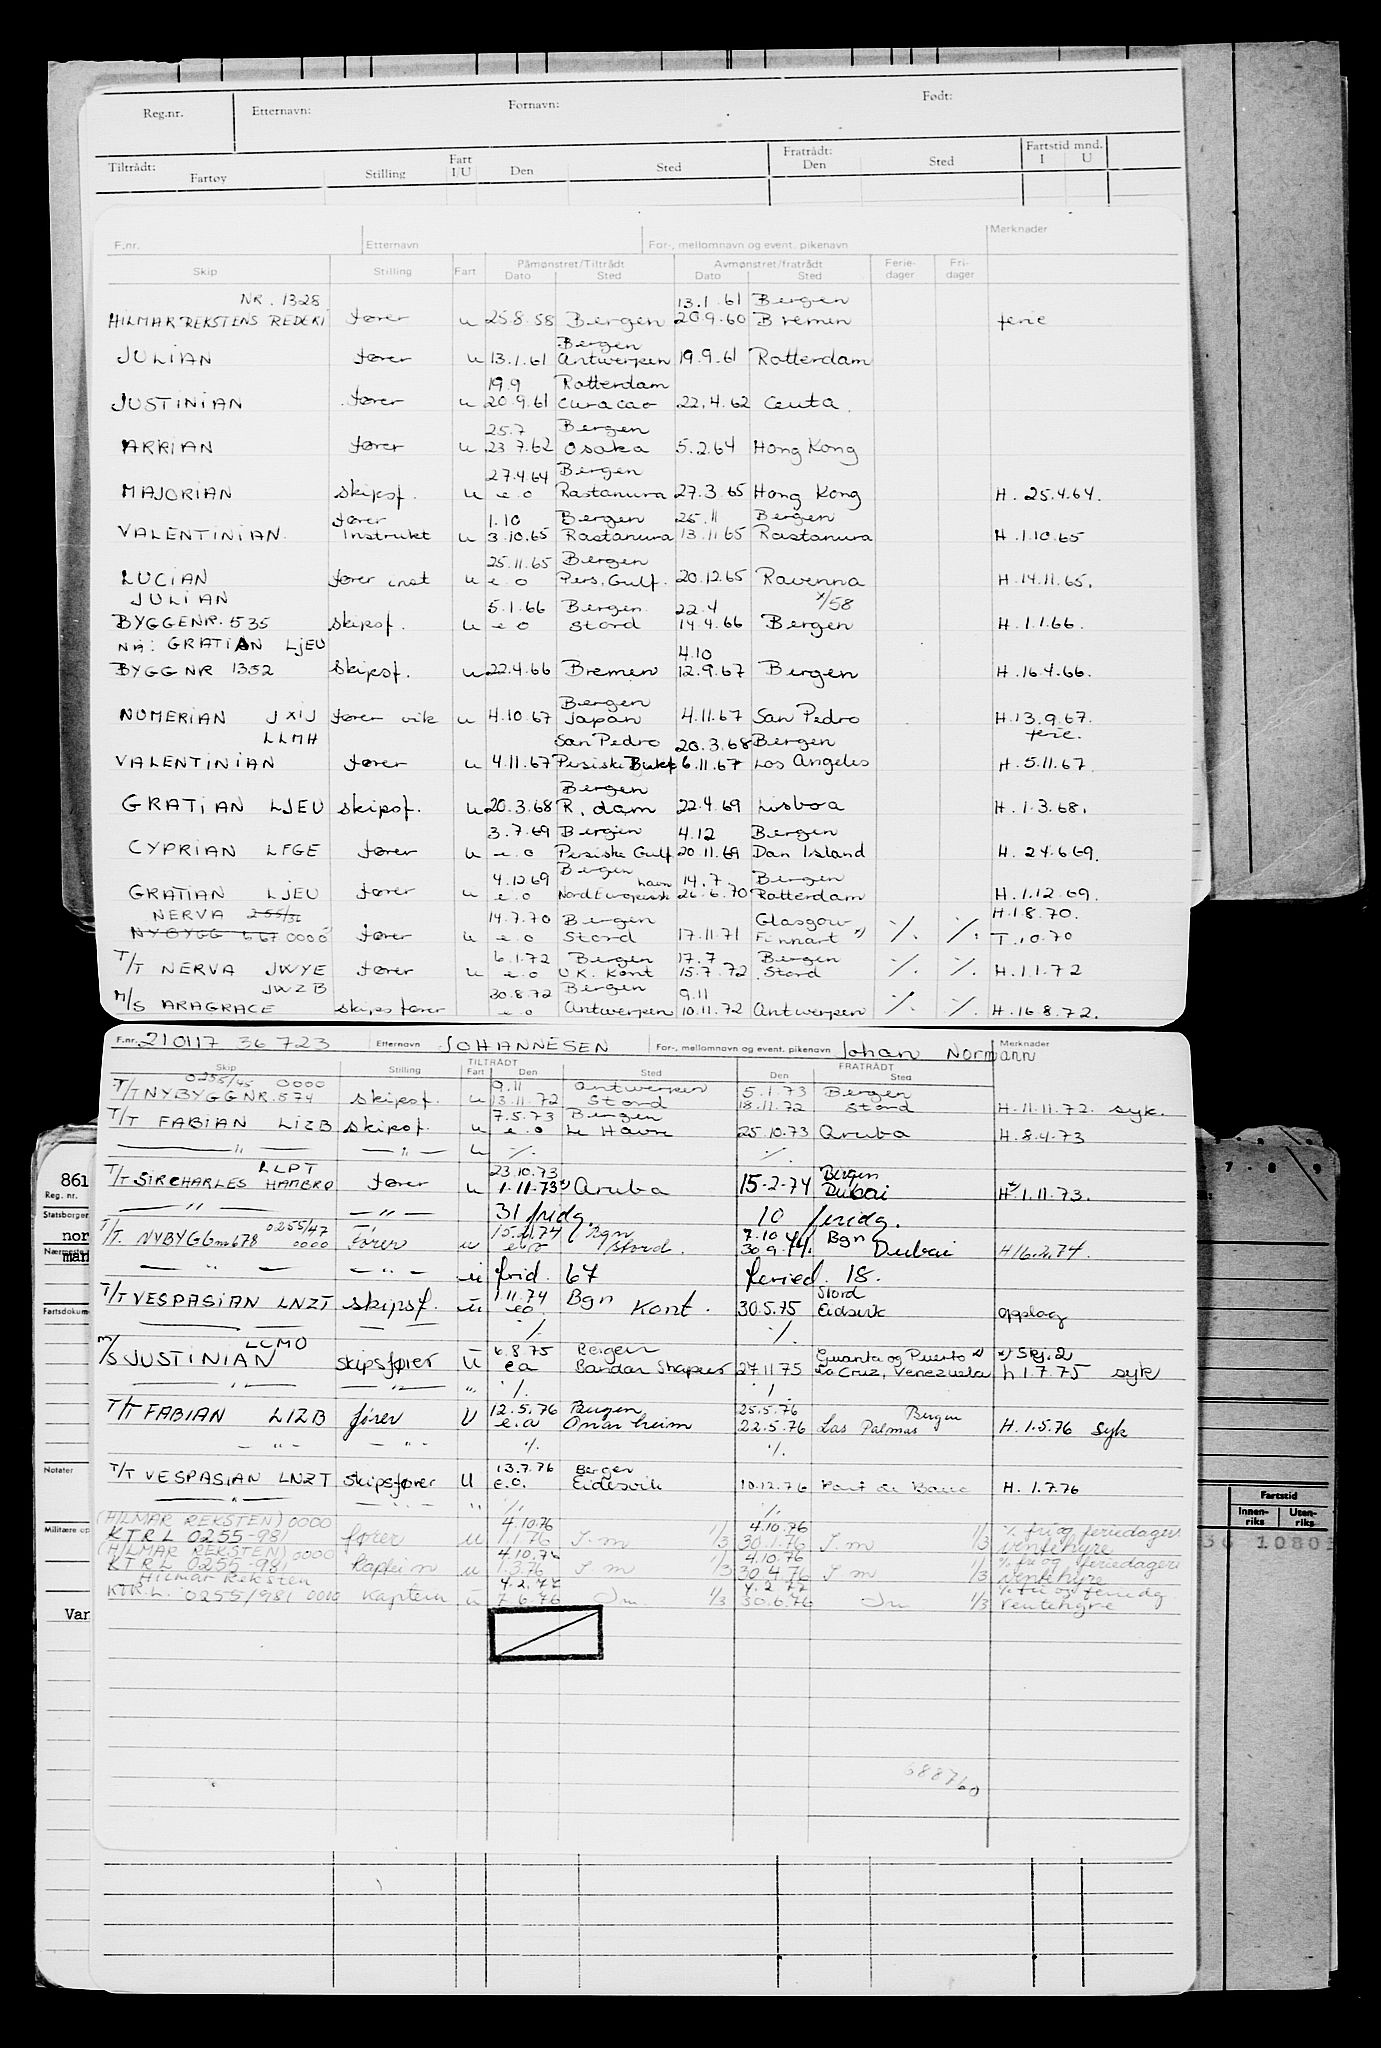 Reg.nr. Etternavn: Fornavn: Født:
Tiltrådt: Fart Fratrådt: Fartstid mnd.
Fartøy Stilling I/U Den Sted Den Sted I U
F.nr. Etternavn For-, mellomnavn og event. pikenavn Merknader
Påmønstret/Tiltrådt Avmønstret/fratrådt Ferie- Fri-
Skip Stilling Fart Dato Sted Dato Sted dager dager
NR. 1328 13.1.61 Bergen
HILMAR REKSTENS REDERI fører u 25.8.58 Bergen 20.9.60 Bremen ferie
Bergen
JULIAN fører u 13.1.61 Antwerpen 19.9.61 Rotterdam
19.9 Rotterdam
JUSTINIAN fører u 20.9.61 Curacao 22.4.62 Ceuta.
25.7 Bergen
ARRIAN fører u 23 7.62 Osaka 5.2.64 Hong Kong
27.4.64 Bergen
MAJORIAN skipsf. u e.o Rastanura 27.3.65 Hong Kong H. 25.4.64.
fører 1.10 Bergen 25.11 Bergen
VALENTINIAN. Instrukt u 3.10.65 Rastanura 13.11 65 Rastanura H.1.10.65
25.11.65 Bergen
LUCIAN fører inst u e.o Pers. Gulf. 20.12.65 Ravenna H.14.11.65.
JULIAN 5.1.66 Bergen 22.4 x/58
BYGGENR. 535 skipsf. u e.o Stord 14.4.66 Bergen H.1.1.66.
NÅ: GRATIAN LJEU 4.10
BYGG NR 1352 skipsf. u 22.4.66 Bremen 12.9.67 Bergen H.16.4.66.
Bergen
NUMERIAN JXIJ fører vik u 4.10.67 Japan 4.11.67 San Pedro H.13.9.67.
LLMH San Pedro 20.3.68 Bergen ferie.
VALENTINIAN fører u 4.11.67 Persiske Bukt 6.11.67 Los Angeles H.5.11.67.
Bergen
GRATIAN LJEU skipsf. u 20.3.68 R.dam 22.4.69 Lisboa H.1.3.68.
3.7.69 Bergen 4.12 Bergen
CYPRIAN LFGE fører u e.o Persiske Gulf 20.11.69 Dan Island H. 24.6 69.
4.12 69 Bergen 14.7 Bergen
GRATIAN LJEU fører u e.o Nord Europeisk havn 26.6.70 Rotterdam H.1.12.69.
NERVA 255/36 14.7.70 Bergen Glasgow H.1.8.70.
NYBYGG 667 0000 fører u e.o Stord 17.11.71 Finnart x) ./. ./. T.10.70
6.1.72 Bergen 17.7 Bergen
T/T NERVA JWYE fører u e.o U.K. Kont 15.7.72 Stord ./. ./. H.1.1.72
JWZB 30.8.72 Bergen 9.11
M/S ARAGRACE skipsfører e.o Antwerpen 10.11.72 Antwerpen ./. ./. H.16 8.72.
F.nr. 210117 36 723 Etternavn JOHANNESEN For-, mellomnavn og event. pikenavn Johan Normann Merknader
TILTRÅDT FRATRÅDT
Skip Stilling Fart Den Sted Den Sted
0255/45 0000 9.11 Antwerpen 5.1.73 Bergen
T/T NYBYGG NR. 574 skipsf. u 13.11.72 Stord 18.11.72 Stord H.11.11.72. syk.
7.5.73 Bergen
T/T FABIAN LIZB skipsf. u e.o Le Havre 25.10.73 Aruba H.8.4.73
— " — — " — u ./. ./.
LLPT 23.10.73 Bergen
T/T SIR CHARLES HAMBRO fører u 1.11.73 x) Aruba 15-2-74 Dubai H x) 1.11.73.
— " — — " — 31 fridg. 10 feridg.
0255/47 15.2.74 Bgn 7.10 Bgn
T/T. NYBYGG nr 678 0000 Fører u e.o Stord. 30.9.74. Dubai H 16.2.74.
— " — — " — u frid. 67 feried. 18.
1.11.74 Bgn Stord
T/T VESPASIAN LNZT skipsf. u eo Kont. 30.5.75 Eidsvik opplag
./. ./.
LCMO 6.8.75 Bergen Guanta og Puerto x) x) Skj.2
M/S JUSTINIAN skipsfører u ea Bandar Shapur 27.11 75 La Cruz, Venezuela h 1.7.75 syk
— " — — " — " ./. ./.
12.5.76 Bergen 25.5.76 Bergen
T/T FABIAN LIZB fører U e.a Onarheim 22.5.76 Las Palmas H.1.5.76 Syk
— " — — " — ./. ./.
13.7.76 Bergen
T/T VESPASIAN LNZT skipsfører U e.o. Eidesvik 10.12.76 H. 1.7.76
./. ./.
(HILMAR REKSTEN) 0000 4.10.76 4.10.76 ./. fri og feriedager
KTRL 0255-981 fører u 1.1.76 I m 1/3 30.1.76 I m 1/3 ventehyre
(HILMAR REKSTEN) 0000 4.10.76 4.10.76 ./. fri og feriedager
KTRL 0255-981 Kaptein u 1.3.76 I m 1/3 30.4.76 I m 1/3 ventehyre
Hilmar Reksten 4.2.77 4.2.77 ./. fri og feriedg
KTR.L. 0255/981 0000 Kaptein u 7.6.76 Im 1/3 30.6.76 Im 1/3 Ventehyre
688760
861
Reg. nr.
Statsborger
nor
mar
Fartsdokum
Notater
Militære op
Var
7 . 8 . 9
Fartstid
Innen-riks Uten-riks
36 1080